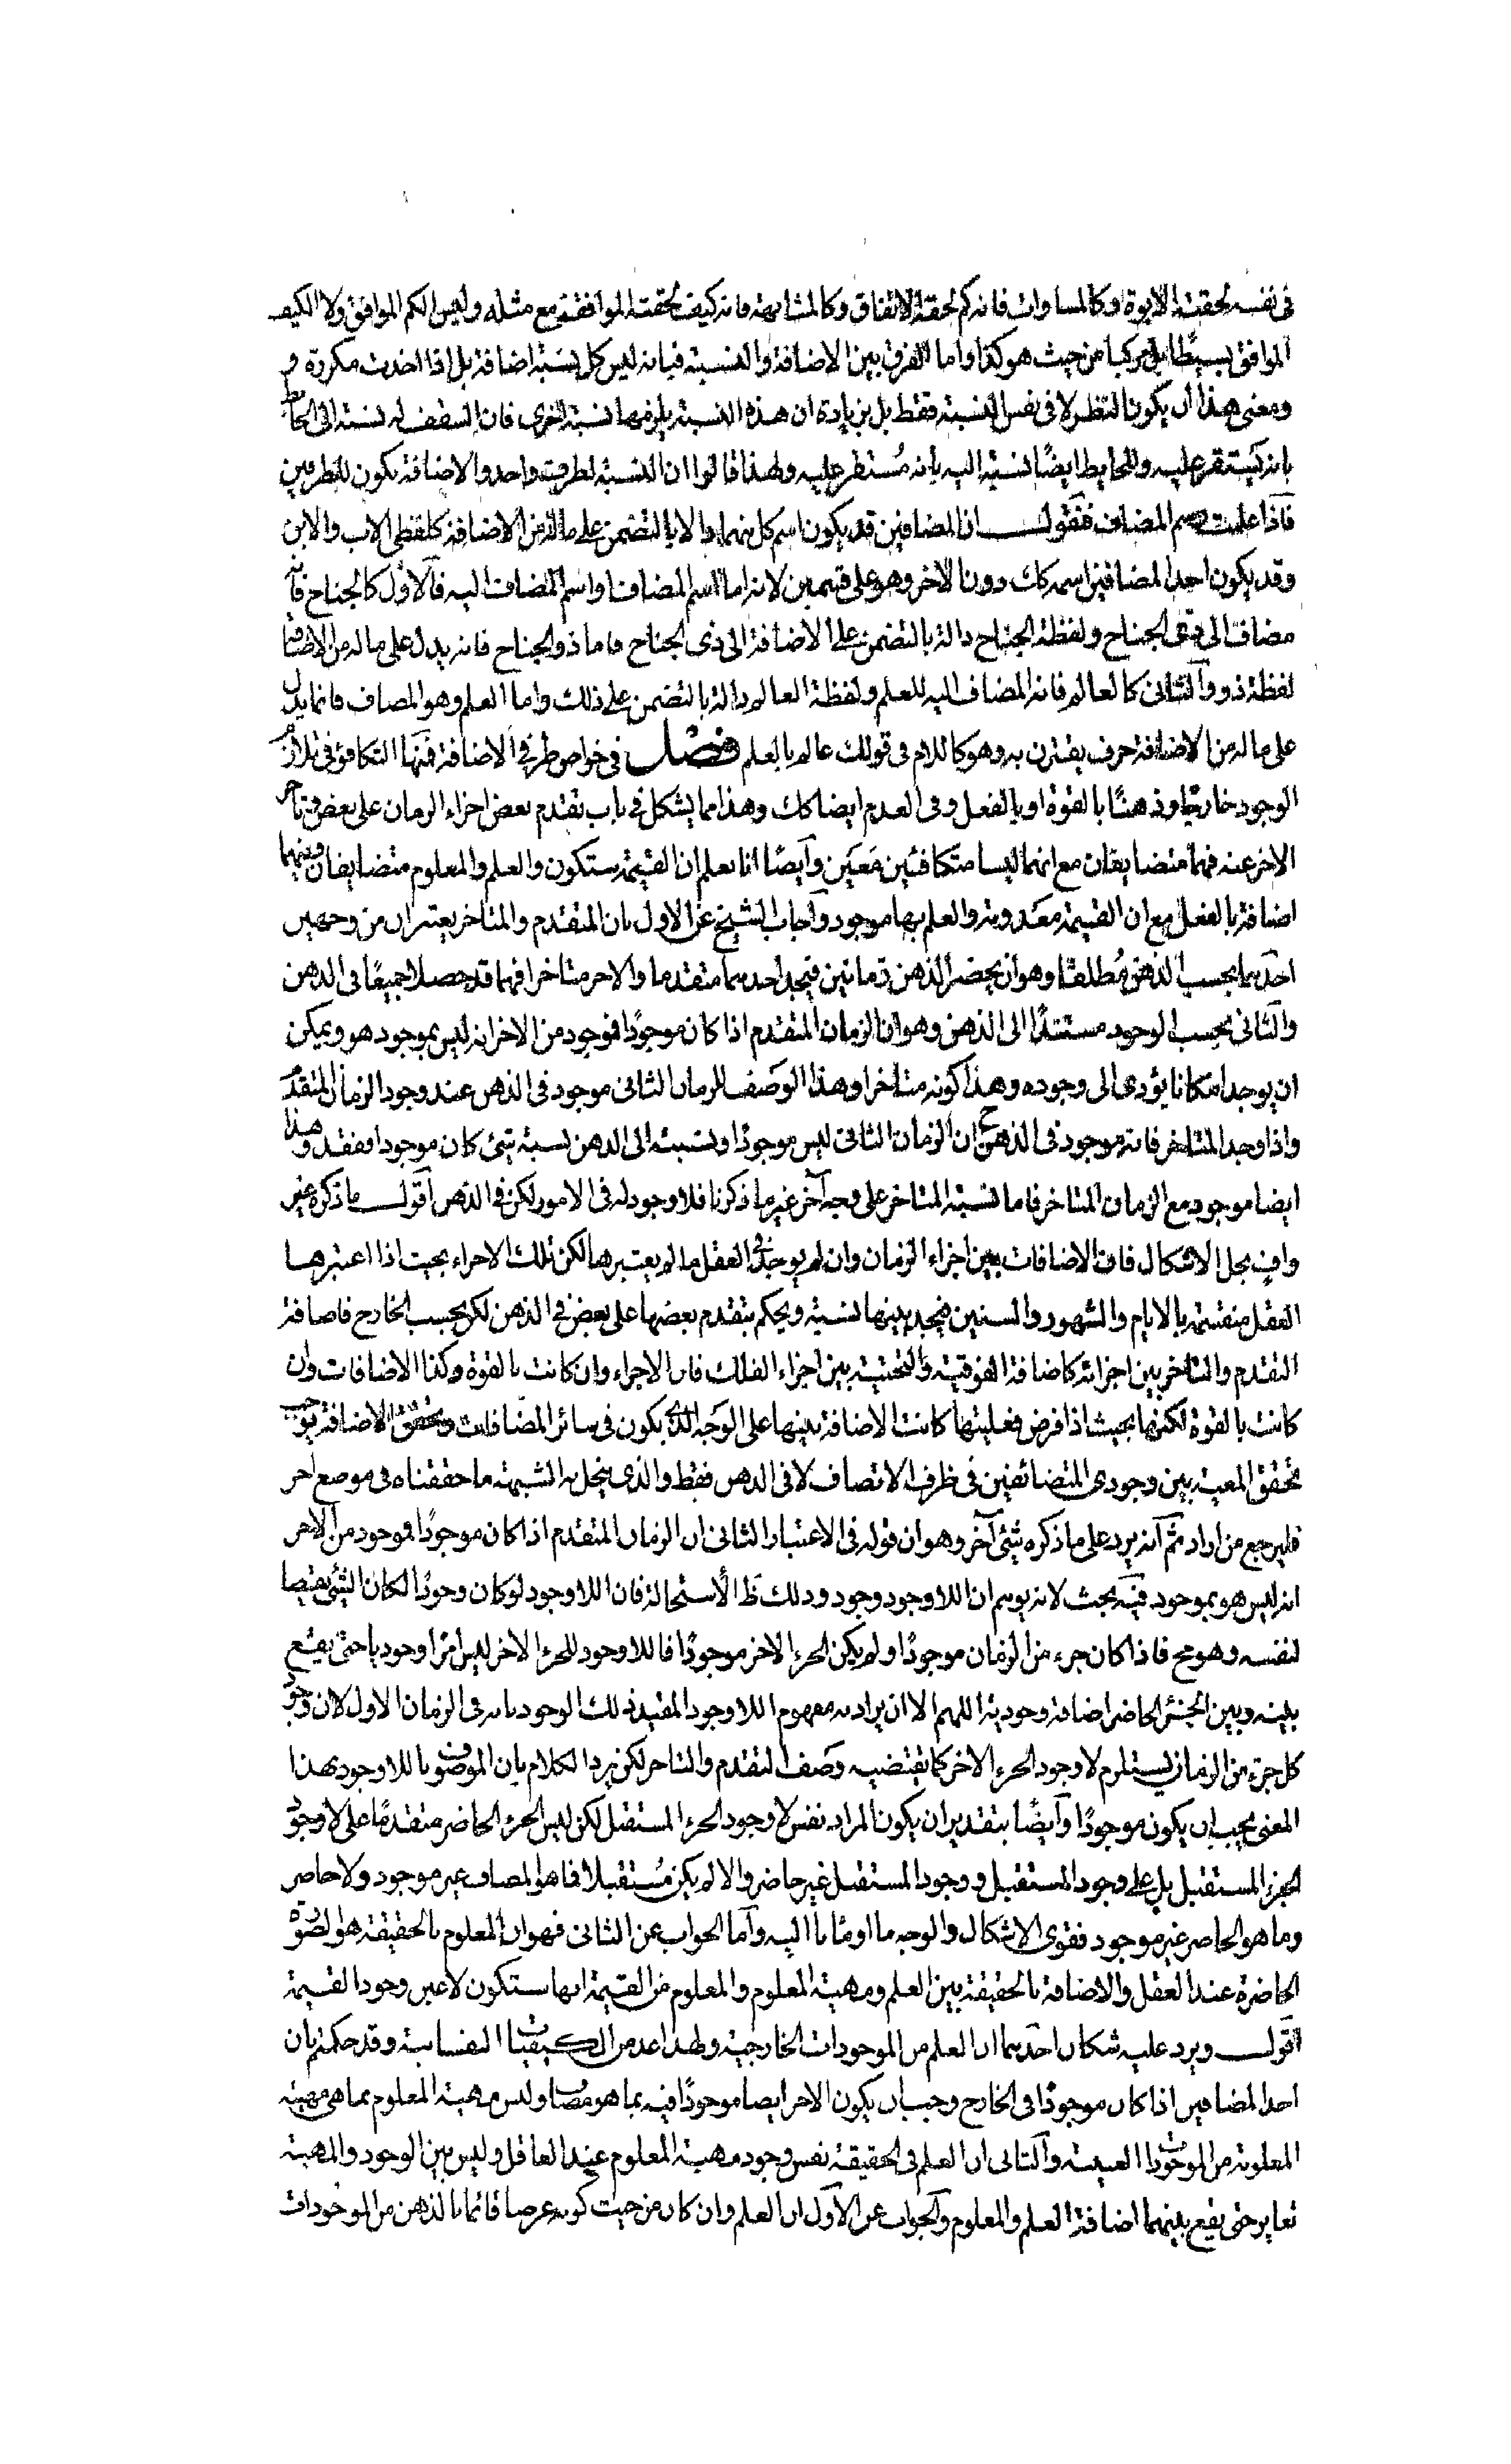 فى نفسه لحقته الابوة او كالمساواة فانه كم لحقه الاتفاق وكالمشابهة فانه كيف لحقته الموافقة مع مثله وليس الكم الموافق ولا الكيف
الموافق بسيطا بل مركبا من حيث هو كذا واما الفرق بين الاضافة والنسبة فبانه ليس كل نسبة اضافة بل اذا اخذت مكررة و
ومعنى هذا ان يكون النظر لا فى نفس النسبة فقط بل بزيادة ان هذه النسبة يلزمها نسبة اخرى فان السقف له نسبة الى الحائط
بانه يستقر عليه وللحايط ايضًا نسبة اليه بانه مُستقر عليه ولهذا قالوا ان النسبة لطرف واحد والاضافة يكون للطرفين
فاذا علمت المضاف فنقول ان المضافين قد يكون اسم كل منهما دالا بالتضمن على ماله من الاضافة كلفظى الاب والابن
وقد يكون احد المضافين اسمه كك دون الاخر وهو على قسمين لانه اما اسم المضاف او اسم المضاف اليه فالاول كالجناح فانه
مضاف الى ذى الجناح ولفظة الجناح دالة بالتضمن على الاضافة الى ذى الجناح فاما ذو الجناح فانه يدل على ماله من الاضافة
لفظة ذو والثانى كالعالم فانه المضاف اليه للعلم ولفظة العالم دالة بالتضمن على ذلك واما العلم وهو المضاف فانما يدل
على ماله من الاضافة حرف يقترن به وهو كاللام فى قولك عالم بالعلم فصل فى خواص طرفى الاضافة فمنها التكافؤ فى تلازم
الوجود خارجًا وذهنًا بالقوة او بالفعل وفى العدم ايضا كك وهذا مما يشكل فى باب تقدم بعض اجزاء الزمان على بعض وتاخر
الاخر عنه فهما متضايفان مع انهما ليسا متكافئين مَعَين وآيضًا انا نعلم ان القيمة ستكون والعلم والمعلوم متضايفان وبينهما
اضافة بالفعل مع ان القيمة معدومة والعلم بها موجود وآجاب الشيخ عن الاول بان المتقدم والمتاخر يعتبران من وجهين
احدهما بحسب الذهن مُطلقًا وهو ان يحضر الذهن زمانين فيجد احدهما متقدما والاخر متاخرا فهما قد حصلا جميعًا فى الذهن
والثانى بحسب الوجود مستندًا الى الذهن وهو ان الزمان المتقدم اذا كان موجودًا فموجود من الاخر انه ليس بموجود هو ويمكن
ان يوجد امكانا يؤدى الى وجوده وهذا كونه متاخرا وهذا الوصف للزمان الثانى موجود فى الذهن عند وجود الزمان المتقدم
واذا وجد المتاخر فانه موجود فى الذهن ح ان الزمان الثانى ليس موجودًا ونسبته الى الذهن نسبة شئ كان موجودا ففقد وهذا
ايضا موجود مع الزمان المتاخر فاما نسبة المتاخر على وجه آخر غير ما ذكرنا فلا وجود له فى الامور لكن فى الذهن اقول ما ذكره غير
وافٍ بحل الاشكال فان الاضافات بين اجزاء الزمان وان لم يوجد فى العقل ما لم يعتبرها لكن تلك الاجزاء بحيث اذا اعتبرها
العقل منقسمة بالايام والشهور والسنين فيجد بينها نسبة ويحكم بتقدم بعضها على بعض فى الذهن لكن بحسب الخارج فاضافة
التقدم والتاخر بين اجزائه كاضافة الفوقية والتحتية بين اجزاء الفلك فان الاجزاء وان كانت بالقوة وكذا الاضافات وان
كانت بالقوة لكنها بحيث اذا فرض فعليتها كانت الاضافة بينها على الوجه الذى يكون فى سائر المضافات وتحقق الاضافة يوجب
تحقق المعية بين وجودى المتضائفين فى ظرف الاتصاف لا فى الذهن فقط والذى ينحل به الشبهة ما حققناه فى موضع اخر
فليرجع من اراد ثم آنه يرد على ما ذكره شئ آخر وهو ان قوله فى الاعتبار الثانى ان الزمان المتقدم اذا كان موجودًا فموجود من الاخر
انه ليس هو بموجود فيه بحث لانه يوهم ان اللاوجود وجود وذلك ظ الاستحالة فان اللاوجود لو كان وجودًا لكان الشئ نقيضا
لنفسه وهو مح فاذا كان جزء من الزمان موجودًا ولم يكن الجزء الاخر موجودًا فاللاوجود للجزء الاخر ليس امرًا وجوديا حتى يقع
بينه وبين الجزء الحاضر اضافة وجودية اللهم الا ان يراد به مفهوم اللاوجود المقيد بذلك الوجود بانه فى الزمان الاول لان وجود
كل جزء من الزمان يستلزم لا وجود الجزء الاخر كما تقتضيه وصف التقدم والتاخر لكن يرد الكلام بان الموصوف باللاوجود بهذا
المعنى يجب ان يكون موجودًا وآيضًا بتقدير ان يكون المراد نفس لا وجود الجزء المستقبل لكن ليس الجزء الحاضر متقدمًا على لا وجود
الجزء المستقبل بل على وجود المستقبل ووجود المستقبل غير حاضر والا لم يكن مُستقبلا فما هو المضاف غير موجود ولا حاضر
وما هو الحاضر غير موجود فقوى الاشكال والوجه ما اومأنا اليه وآما الجواب عن الثانى فهو ان المعلوم بالحقيقة هو الصورة
الحاضرة عند العقل والاضافة بالحقيقة بين العلم ومهية المعلوم والمعلوم من القيمة انها ستكون لا عين وجود القيمة
آقول ويرد عليه شكان احدهما ان العلم من الموجودات الخارجية ولهذا عد من الكيفيات النفسانية وقد حكمتم بان
احد المضافين اذا كان موجودًا فى الخارج وجب ان يكون الاخر ايضا موجودًا فيه بما هو مضاف وليس مهية المعلوم بما هى مهية
المعلومة من الموجودات العينية وآلثانى ان العلم فى الحقيقة نفس وجود مهية المعلوم عند العاقل وليس بين الوجود والمهية
تغاير حتى يقع بينهما اضافة العلم والمعلوم والجواب عن الآول ان العلم وان كان من حيث كونه عرضا قائما بالذهن من الموجودات